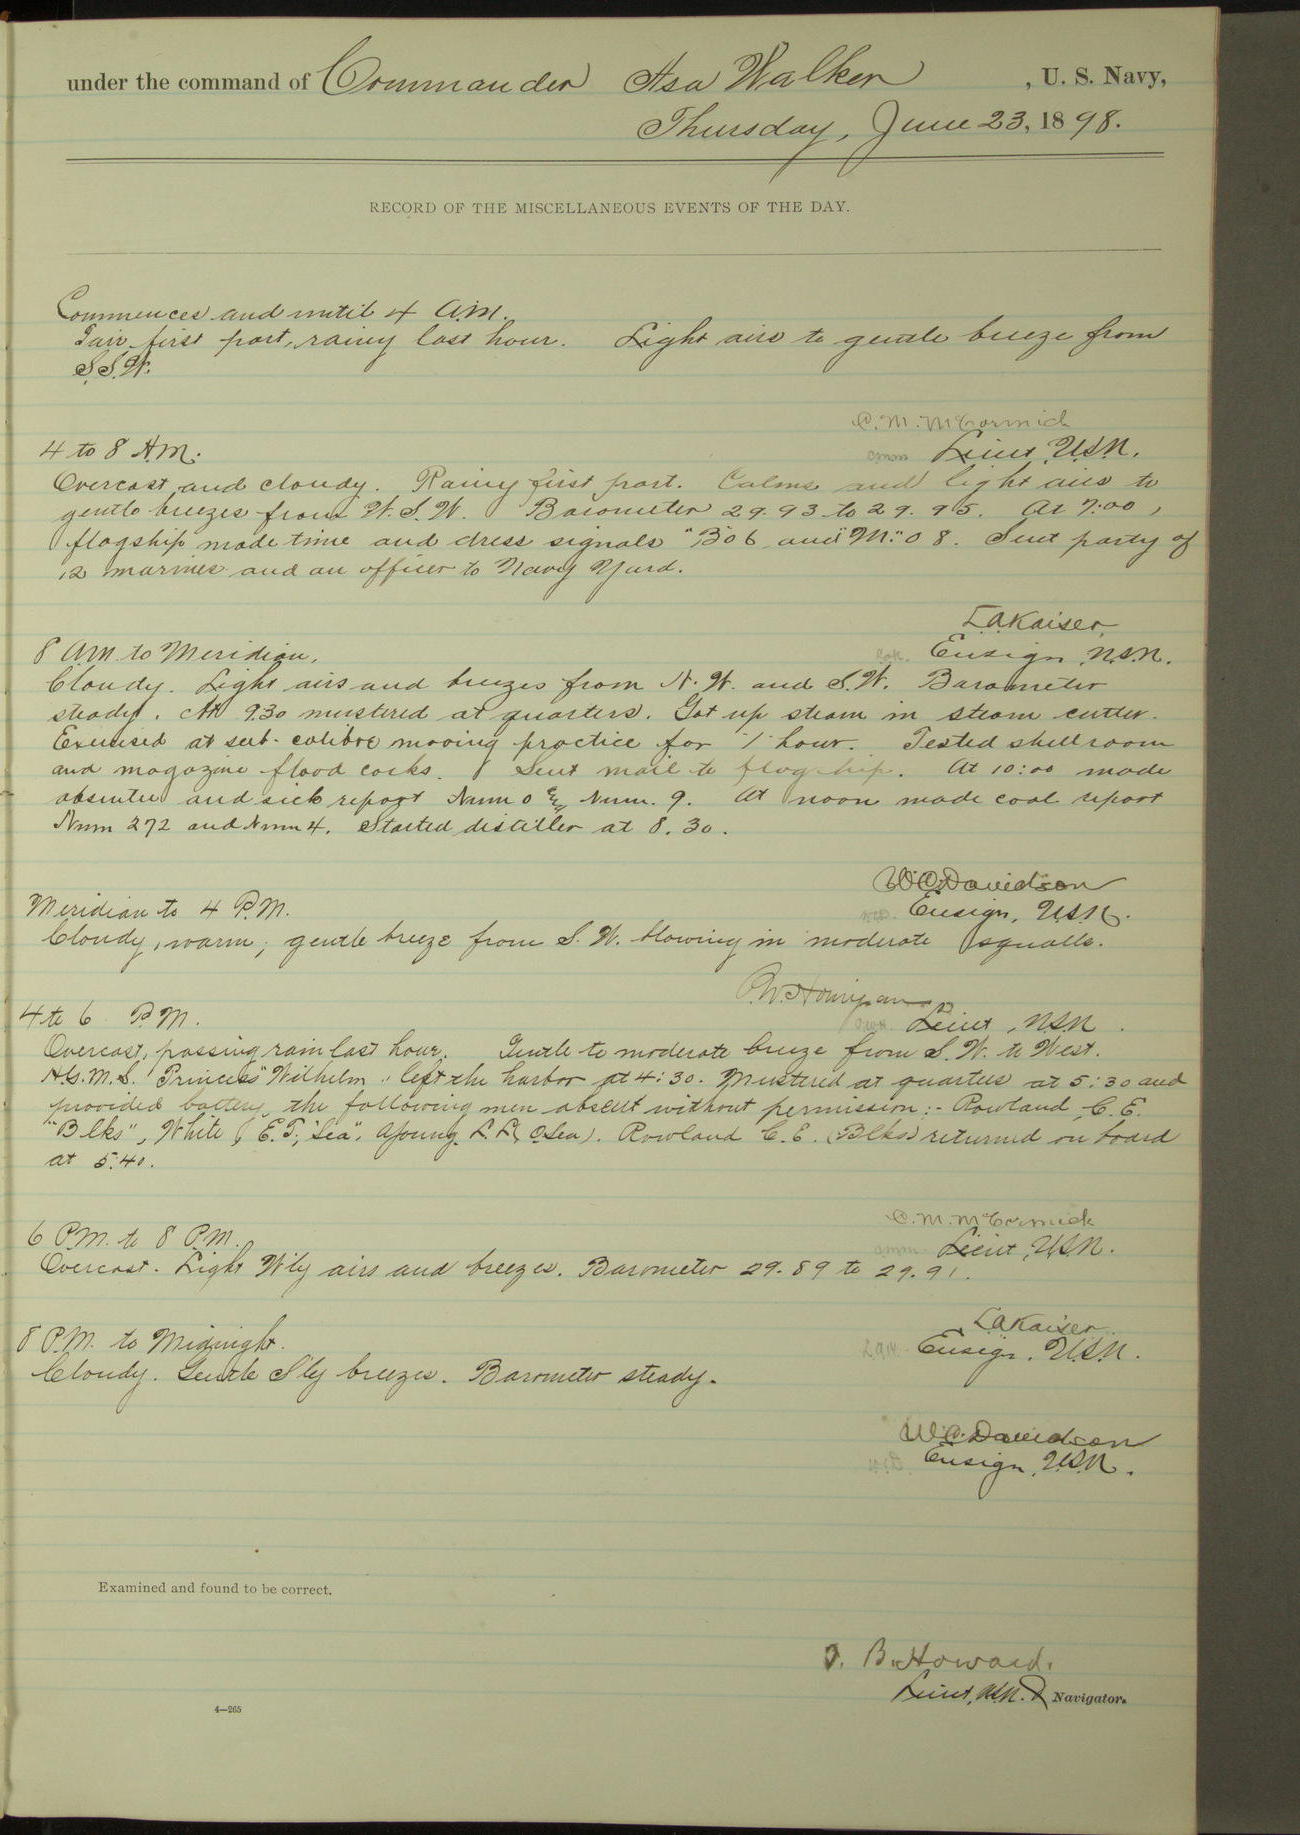 under the command of Commander Asa Walker, U. S. Navy,
Thursday, June 23, 1898.
RECORD OF THE MISCELLANEOUS EVENTS OF THE DAY.
Commences and until 4 A.M.
Fair first part, rainy last hour. Light airs to gentle breeze from
S.S.W.
C. M. McCormick
Lieut, U.S.N.
4 to 8 A.M.
Overcast and cloudy. Rainy first part. Calms and light airs to
gentle breezes from W.S.W. Barometer 29.93 to 29.95. At 7:00,
flagship made time and dress signals "B" 0 6 and "M" 0 8. Sent party of
12 marines and an officer to Navy Yard.
L.A. Kaiser,
Ensign, U.S.N.
8 A.M. to Meridian.
Cloudy. Light airs and breezes from N.W. and S.W. Barometer
steady. At 9.30 mustered at quarters. Got up steam in steam cutter.
Exercised at sub-calibre mooing practice for 1 hour. Tested shell room
and magazine flood cocks. Sent mail to flagship. At 10:00 made
absentee and sick report Num 0 & Num. 9. At noon made coal report
Num 272 and Num 4. Started distiller at 8.30.
W.C. Davidson
Ensign, U.S.N.
Meridian to 4 P.M.
Cloudy, warm; gentle breeze from S.W. blowing in moderate squalls.
P.W. Hourigan
Lieut, U.S.N.
4 to 6 P.M.
Overcast, passing rain last hour. Gentle to moderate breeze from S.W. to West.
H.G.M.S. "Princess Wilhelm" left the harbor at 4:30. Mustered at quarters at 5:30 and
provided battery, the following men absent without permission:- Rowland, C.E.
"Blks", White, E.T., "Sea", Young L.L, O.Sea). Rowland C.E. (Blks) returned on board
at 5.40.
C. M. McCormick
Lieut, U.S.N.
6 P.M. to 8 P.M.
Overcast. Light W'ly airs and breezes. Barometer 29.89 to 29.91.
L.A. Kaiser.
Ensign, U.S.N.
8 P.M. to Midnight.
Cloudy. Gentle S'ly breezes. Barometer steady.
W.C. Davidson
Ensign, U.S.N.
Examined and found to be correct.
B. Howard.
Lieut, U.S.N. & Navigator.
4—265